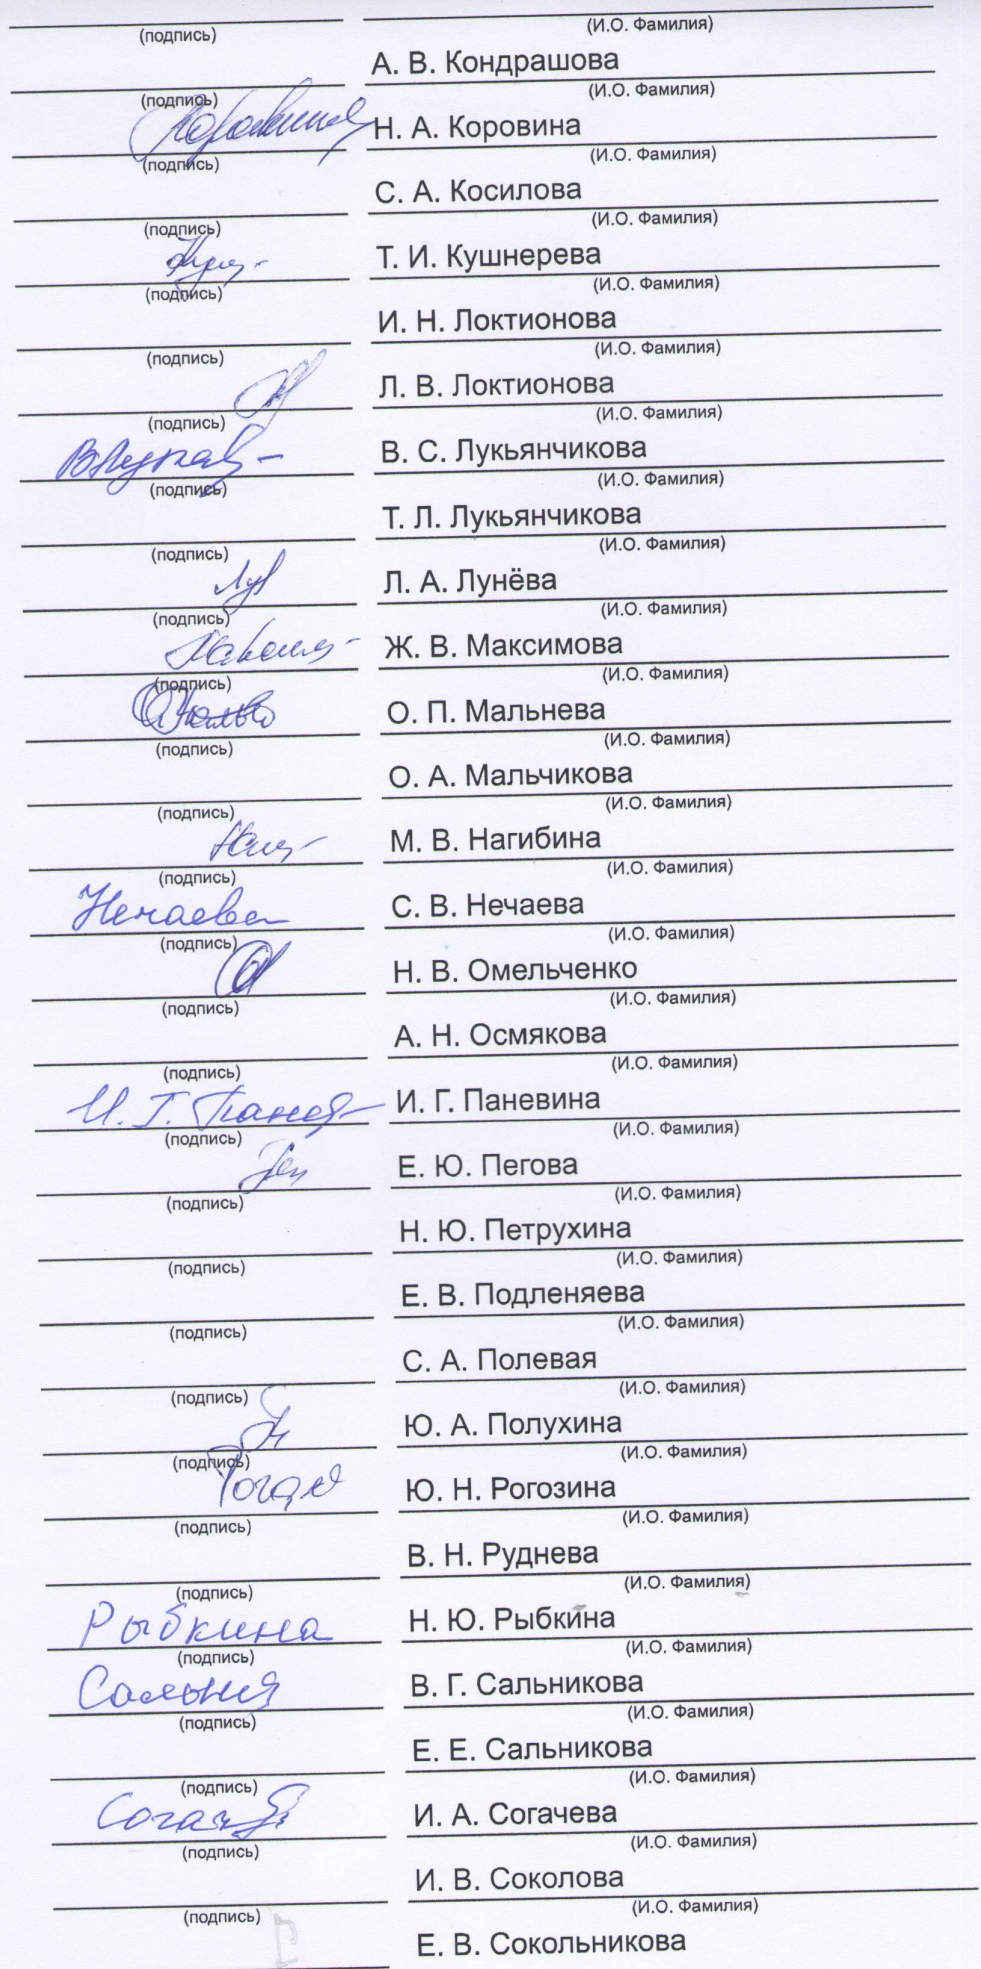 (подпись) (И.О. Фамилия)
А. В. Кондрашова
(подпись) (И.О. Фамилия)
Н. А. Коровина
(подпись) (И.О. Фамилия)
С. А. Косилова
(подпись) (И.О. Фамилия)
Т. И. Кушнерева
(подпись) (И.О. Фамилия)
И. Н. Локтионова
(подпись) (И.О. Фамилия)
Л. В. Локтионова
(подпись) (И.О. Фамилия)
В. С. Лукьянчикова
(подпись) (И.О. Фамилия)
Т. Л. Лукьянчикова
(подпись) (И.О. Фамилия)
Л. А. Лунёва
(подпись) (И.О. Фамилия)
Ж. В. Максимова
(подпись) (И.О. Фамилия)
О. П. Мальнева
(подпись) (И.О. Фамилия)
О. А. Мальчикова
(подпись) (И.О. Фамилия)
М. В. Нагибина
(подпись) (И.О. Фамилия)
Нечаева С. В. Нечаева
(подпись) (И.О. Фамилия)
Н. В. Омельченко
(подпись) (И.О. Фамилия)
А. Н. Осмякова
(подпись) (И.О. Фамилия)
И. Г. И. Г. Паневина
(подпись) (И.О. Фамилия)
Е. Ю. Пегова
(подпись) (И.О. Фамилия)
Н. Ю. Петрухина
(подпись) (И.О. Фамилия)
Е. В. Подленяева
(подпись) (И.О. Фамилия)
С. А. Полевая
(подпись) (И.О. Фамилия)
Ю. А. Полухина
(подпись) (И.О. Фамилия)
Ю. Н. Рогозина
(подпись) (И.О. Фамилия)
В. Н. Руднева
(подпись) (И.О. Фамилия)
Рыбкина Н. Ю. Рыбкина
(подпись) (И.О. Фамилия)
В. Г. Сальникова
(подпись) (И.О. Фамилия)
Е. Е. Сальникова
(подпись) (И.О. Фамилия)
И. А. Согачева
(подпись) (И.О. Фамилия)
И. В. Соколова
(подпись) (И.О. Фамилия)
Е. В. Сокольникова